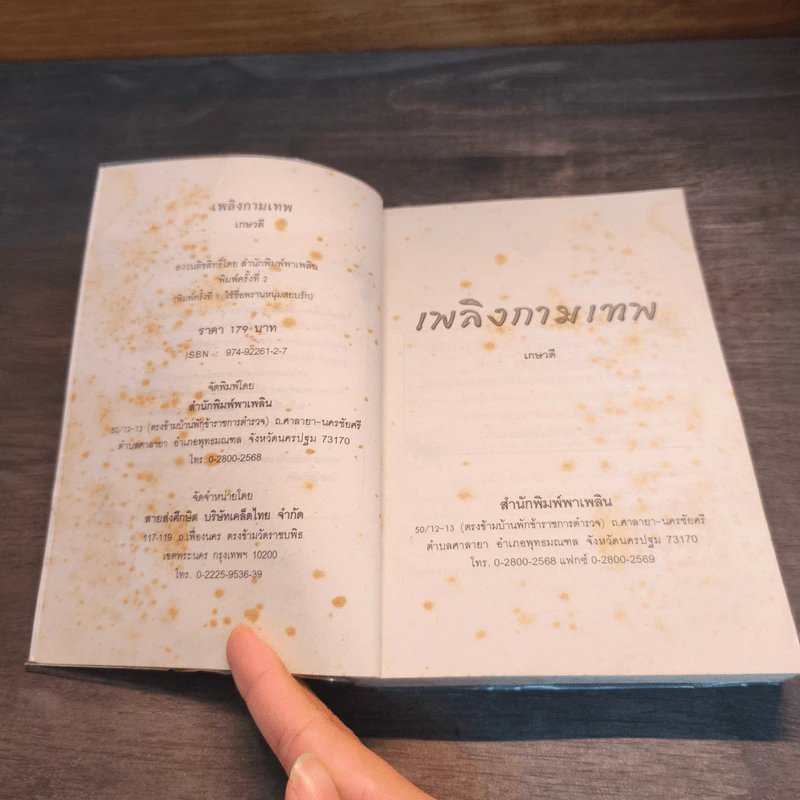 เพลิงกามเทพ
เกษวดี
สงวนลิขสิทธิ์โดย สำนักพิมพ์พาเพลิน
พิมพ์ครั้งที่ 2
(พิมพ์ครั้งที่ 1 ใช้ชื่อพรานหนุ่มสยบรัก)
ราคา 179 บาท
ISBN : 974-92261-2-7
จัดพิมพ์โดย
สำนักพิมพ์พาเพลิน
50/12-13 (ตรงข้ามบ้านพักข้าราชการตำรวจ) ถ.ศาลายา-นครชัยศรี
ตำบลศาลายา อำเภอพุทธมณฑล จังหวัดนครปฐม 73170
โทร. 0-2800-2568
จัดจำหน่ายโดย
สายส่งศึกษิต บริษัทเคล็ดไทย จำกัด
117-119 ถ.เฟื่องนคร ตรงข้ามวัดราชบพิธ
เขตพระนคร กรุงเทพฯ 10200
โทร. 0-2225-9536-39
เพลิงกามเทพ
เกษวดี
สำนักพิมพ์พาเพลิน
50/12-13 (ตรงข้ามบ้านพักข้าราชการตำรวจ) ถ.ศาลายา-นครชัยศรี
ตำบลศาลายา อำเภอพุทธมณฑล จังหวัดนครปฐม 73170
โทร. 0-2800-2568 แฟกซ์ 0-2800-2569